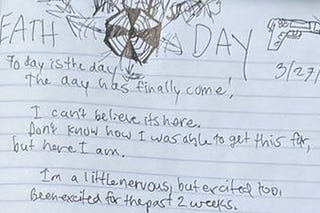 EATH DAY
3/27/
Today is the day
The day has finally come,
I can't believe its here.
Don't know how I was able to get this far,
but here I am.
I'm a little nervous, but excited too,
Been excited for the past 2 weeks.